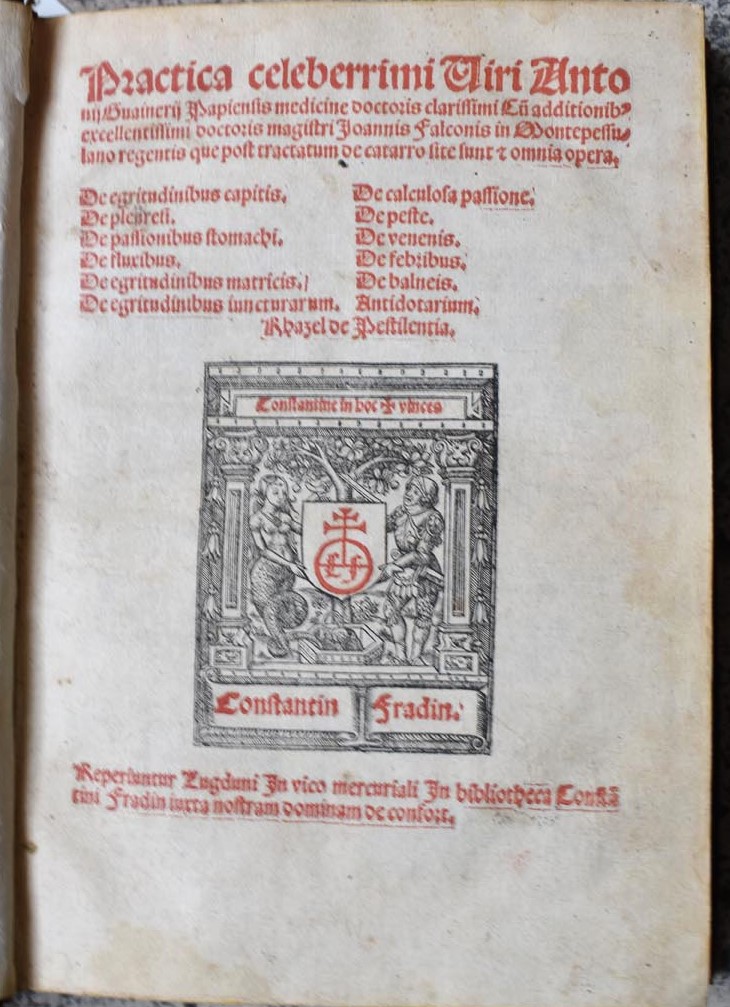 Practica celeberrimi Uiri Anto
nij Guainerij Papiensis medicine doctoris clarissimi Cũ additionibꝰ
excellentissimi doctoris magistri Joannis Falconis in Montepessu/
lano regentis que post tractatum de catarro site sunt ⁊ omnia opera.
De egritudinibus capitis. De calculosa passione.
De pleuresi. De peste.
De passionibus stomachi. De venenis.
De fluxibus. De febribus.
De egritudinibus matricis. De balneis.
De egritudinibus iuncturarum. Antidotarium.
Rhazel de Pestilentia.
Constantine in hoc ✠ vinces
Constantin Fradin.
Reperiuntur Lugduni In vico mercuriali In bibliotheca Constã
tini Fradin iuxta nostram dominam de confort.